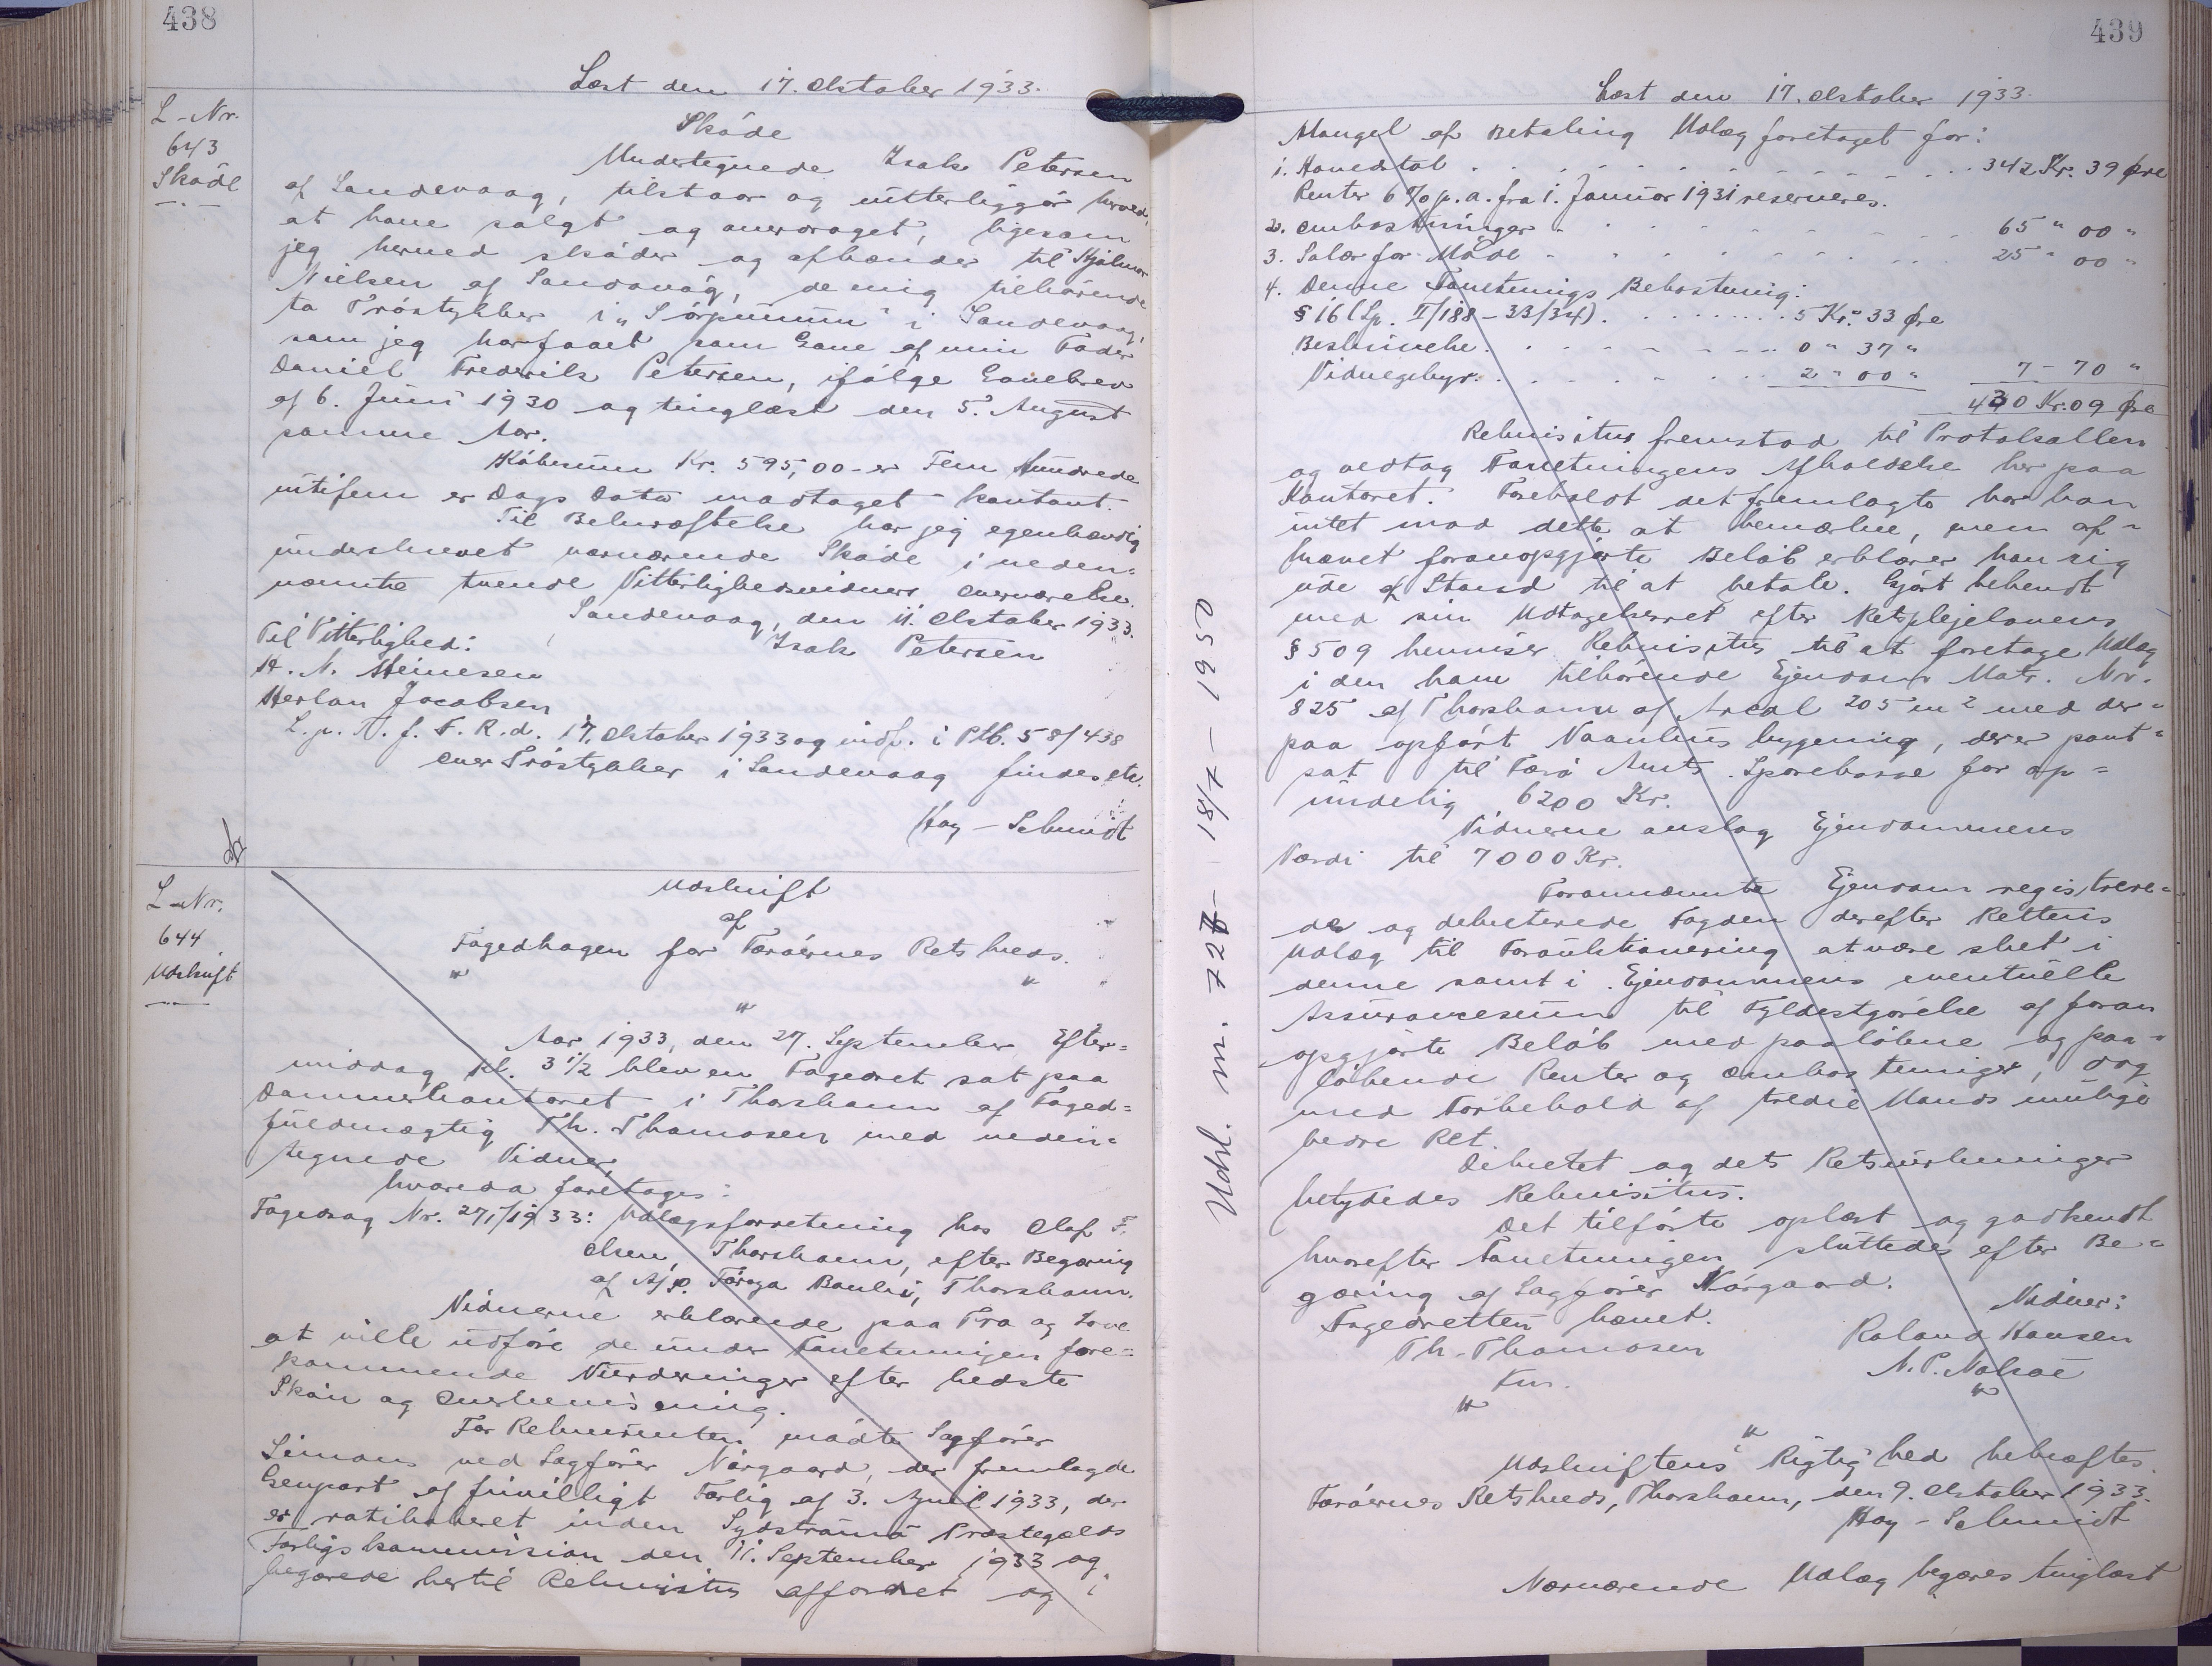 438
Læst den 17. Oktober 1933.
L-Nr.
643
Skøde
Skøde
Undertegnede Isak Petersen
af Sandevaag, tilstaar og vitterliggør herved,
at have solgt og overdraget, ligesom
jeg herved skøder og afhænder til Hjalmar
Nielsen af Sandavág, de mig tilhørende
to Trøstykker i "Sørpunum" i Sandevaag,
som jeg har faaet som Gave af min Fader
Daniel Frederik Petersen, ifølge Gavebrev
af 6. Juni 1930 og tinglæst den 5. August
samme Aar.
Købesum Kr. 595,00 - er Fem Hundrede
nitifem er Dags Dato modtaget kontant.
Til Bekræftelse har jeg egenhændig
underskrevet nærværende Skøde i neden-
nævnte tvende Vitterlighedsvidners Overværelse.
Sandevaag, den 11. Oktober 1933.
Til Vitterlighed:
Isak Petersen
H. N. Heinesen
Herlon Jacobsen
L. p. T. f. F. R. d. 17. Oktober 1933 og indf. i Ptb. 58/438
over Trøstykker i Sandevaag findes etc.
Hoy-Schmidt
L-Nr.
644
Udskrift
Udskrift
af
Fogedbogen for Færøernes Retskreds.
Aar 1933, den 27. September Efter=
middag Kl. 3 1/2 blev en Fogedret sat paa
Dommerkontoret i Thorshavn af Foged=
fuldmægtig Th. Thomasen med neden=
tegnede Vidner,
hvorda foretoges:
Fogedsag Nr. 271/1933: Udlægsforretning hos Olaf F.
Olsen, Thorshavn, efter Begæring
af A/S. Føroya Banki, Thorshavn.
Vidnerne erklærede paa Tro og Love
at ville udføre de under Forretningen fore=
kommende Vurderinger efter bedste
Skøn og Overbevisning.
For Rekvirenten mødte Sagfører
Simons ved Sagfører Nórgaard, der fremlagde
Genpart af frivilligt Forlig af 3. April 1933, der
er ratihaberet inden Sydstrømø Præstegælds
Forligskommission den 11. September 1933 og
begærede hertil Rekvisitus affordret og i
439
Læst den 17. Oktober 1933.
Mangel af Betaling Udlæg foretaget for:
1. Hovedstol . . . . . . . . . . 342 Kr. 39 Øre
Renter 6% p. a. fra 1. Januar 1931 reserveres.
2. Omkostninger . . . . . . . . 65 " 00 "
3. Salær for Møde . . . . . . . 25 " 00 "
4. Denne Forretnings Bekostning:
§ 16 (Lp. II/188-33/34) . . . . . . . 5 Kr. 33 Øre
Beskrivelse . . . . . . . . 0 " 37 "
Vidnegebyr . . . . . . . 2 " 00 " 7 - 70 "
440 Kr. 09 Øre
Rekvisitus fremstod til Protokollen
og vedtog Forretningens Afholdelse her paa
Kontoret. Foreholdt det fremlagte har han
intet mod dette at bemærke, men af=
krævet foranopgjørte Beløb erklærer han sig
ude af Stand til at betale. Gjort bekendt
med sin Udtagelsesret efter Retsplejelovens
§ 509 henviser Rekvisitus til at foretage Udlæg
i den ham tilhørende Ejendom Matr. Nr.
825 af Thorshavn af Areal 205 m2 med der=
paa opført Vaanhus bygning, der er pant=
sat til Færø Amts Sparekasse for op=
rindelig 6200 Kr.
Vidnerne anslog Ejendommens
Værdi til 7000 Kr.
Forannævnte Ejendom registrere=
de og dekreterede Fogden derefter Rettens
Udlæg til Forauktionering at være sket i
denne samt i Ejendommens eventuelle
Assurancesum til Fyldestgørelse af foran
opgjørte Beløb med paaløbne og paa=
løbende Renter og Omkostninger, dog
med Forbehold af tredie Mands mulige
bedre Ret.
Dekretet og dets Retsvirkninger
betydedes Rekvisitus.
Det tilførte oplæst og godkendt
hvorefter Forretningen sluttedes efter Be=
gæring af Sagfører Nórgaard.
Fogedretten hævet.
Vidner:
Th. Thomasen
Roland Hansen
Fm.
N. P. Nolsøe
Udskriftens Rigtighed bekræftes.
Færøernes Retskreds, Thorshavn, den 9. Oktober 1933.
Hoy-Schmidt
Nærværende Udlæg begæres tinglæst
Udsl. m. 726 - 18/7 - 1950